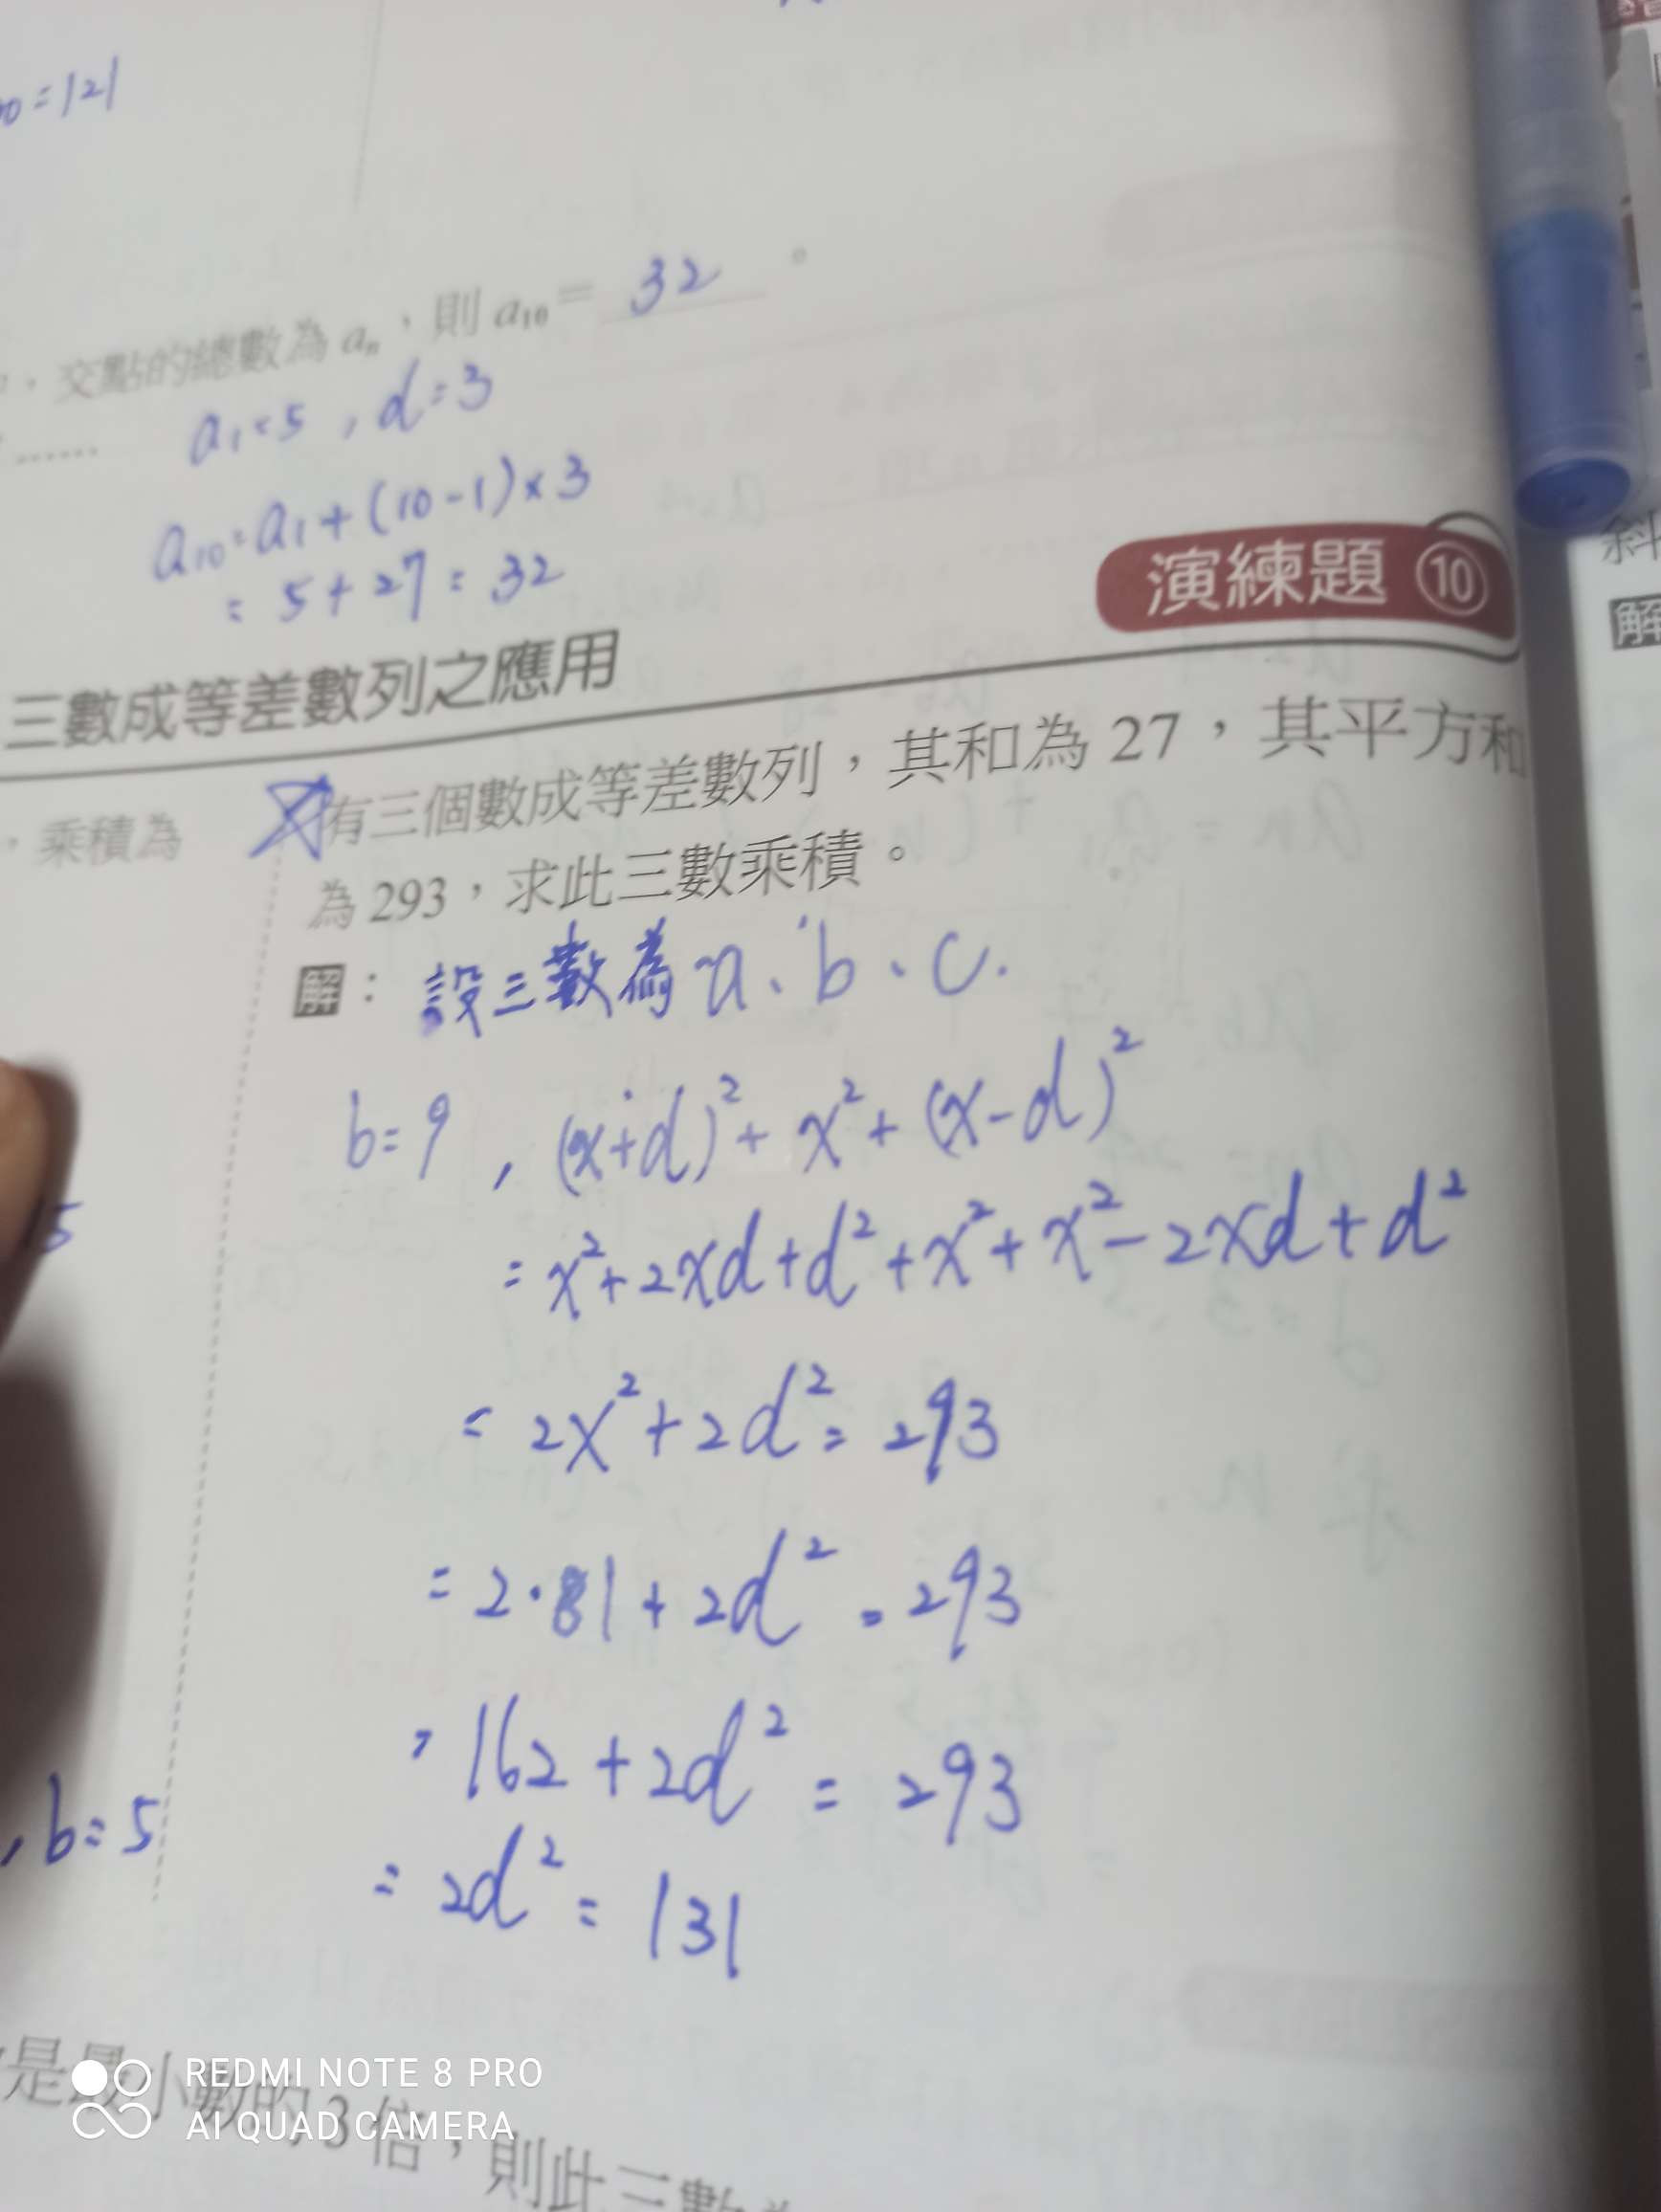 =121
，交點的總數為 aₙ，則 a₁₀＝ 32 。
...... a₁=5 , d=3
a₁₀=a₁+(10-1)×3
= 5+27=32
演練題 ⑩
三數成等差數列之應用
，乘積為
有三個數成等差數列，其和為 27，其平方和
為 293，求此三數乘積。
解： 設三數為 a、b、c.
b=9 , (x+d)²+x²+(x-d)²
=x²+2xd+d²+x²+x²-2xd+d²
5
= 2x²+2d²=293
= 2·81+2d²=293
= 162+2d²=293
, b=5
= 2d²=131
是最小數的 3 倍，則此三數為
解
REDMI NOTE 8 PRO
AI QUAD CAMERA